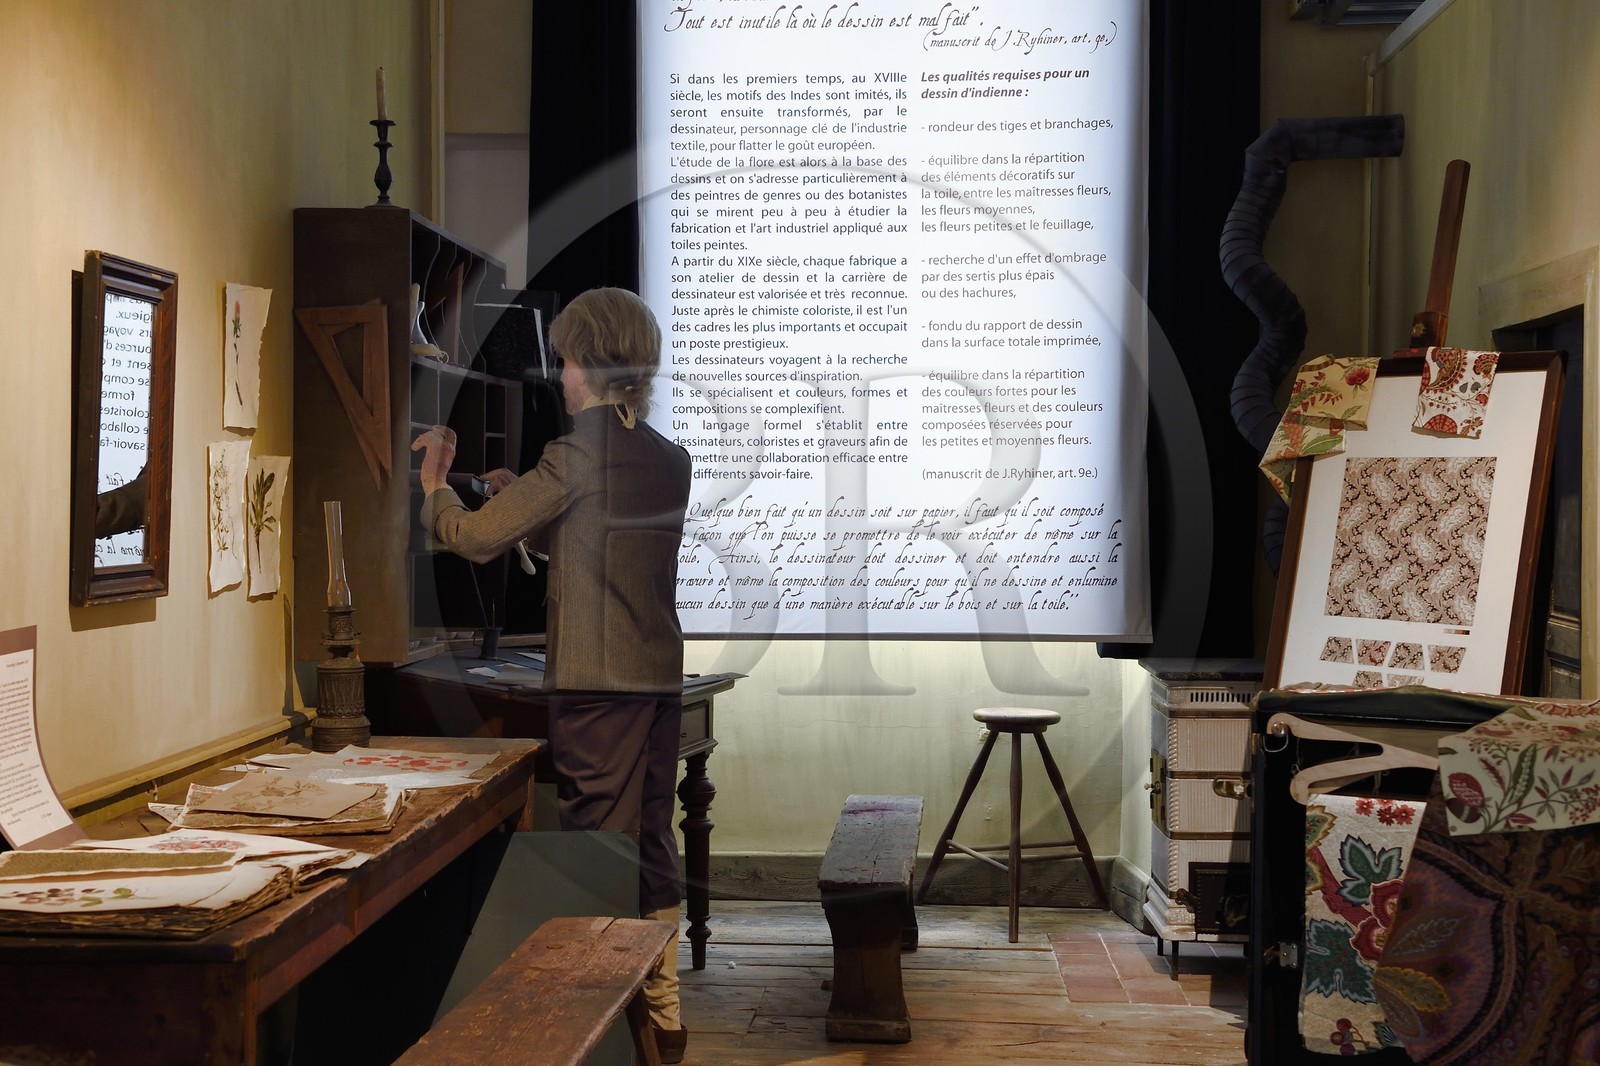 Tout est inutile là où le dessin est mal fait".
(manuscrit de J.Ryhiner, art. 9e.)
Si dans les premiers temps, au XVIIIe
siècle, les motifs des Indes sont imités, ils
seront ensuite transformés, par le
dessinateur, personnage clé de l'industrie
textile, pour flatter le goût européen.
L'étude de la flore est alors à la base des
dessins et on s'adresse particulièrement à
des peintres de genres ou des botanistes
qui se mirent peu à peu à étudier la
fabrication et l'art industriel appliqué aux
toiles peintes.
A partir du XIXe siècle, chaque fabrique a
son atelier de dessin et la carrière de
dessinateur est valorisée et très reconnue.
Juste après le chimiste coloriste, il est l'un
des cadres les plus importants et occupait
un poste prestigieux.
Les dessinateurs voyagent à la recherche
de nouvelles sources d'inspiration.
Ils se spécialisent et couleurs, formes et
compositions se complexifient.
Un langage formel s'établit entre
dessinateurs, coloristes et graveurs afin de
mettre une collaboration efficace entre
différents savoir-faire.
Les qualités requises pour un
dessin d'indienne :
- rondeur des tiges et branchages,
- équilibre dans la répartition
des éléments décoratifs sur
la toile, entre les maîtresses fleurs,
les fleurs moyennes,
les fleurs petites et le feuillage,
- recherche d'un effet d'ombrage
par des sertis plus épais
ou des hachures,
- fondu du rapport de dessin
dans la surface totale imprimée,
- équilibre dans la répartition
des couleurs fortes pour les
maîtresses fleurs et des couleurs
composées réservées pour
les petites et moyennes fleurs.
(manuscrit de J.Ryhiner, art. 9e.)
Quelque bien fait qu'un dessin soit sur papier, il faut qu'il soit composé
façon que l'on puisse se promettre de le voir exécuter de même sur la
toile. Ainsi, le dessinateur doit dessiner et doit entendre aussi la
gravure et même la composition des couleurs pour qu'il ne dessine et enlumine
aucun dessin que d'une manière exécutable sur le bois et sur la toile."
BR